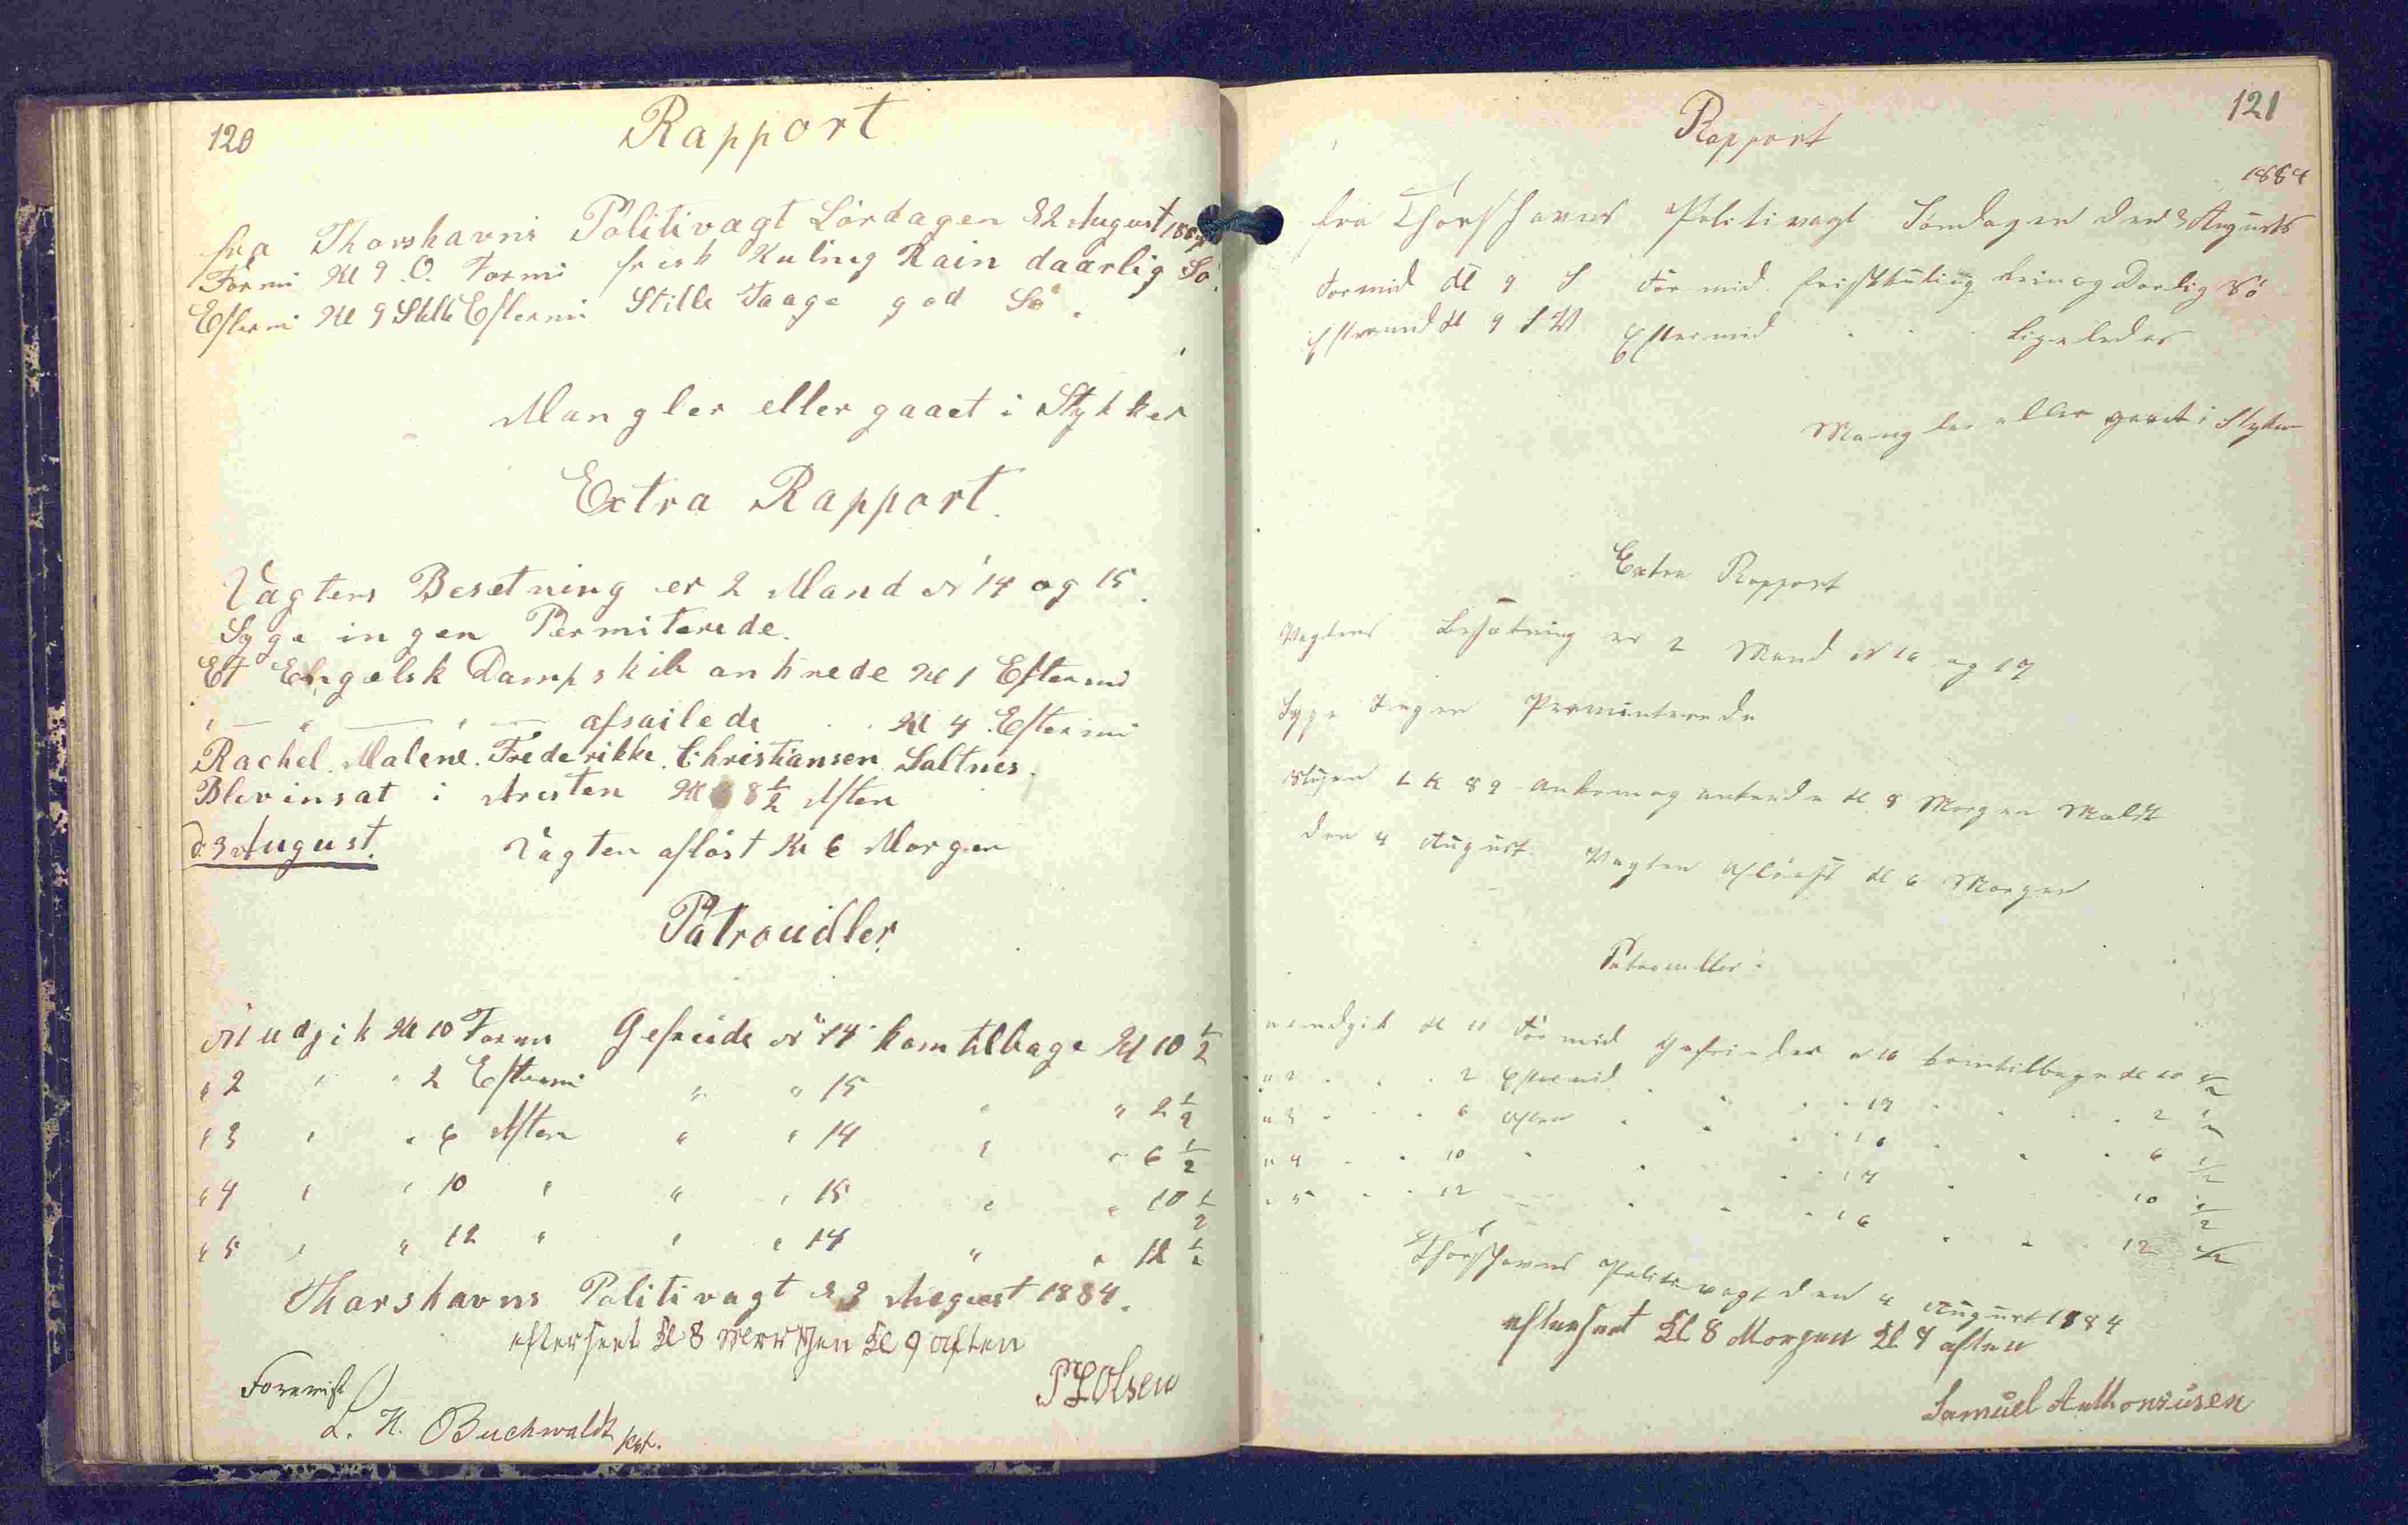 120
Rapport
fra Thorshavns Politivagt Lördagen d 2 August 1884
Formi Kl 9. O. Formi frisk Kuling Rain daarlig Sö.
Eftermi Kl 9 Stille Eftermi Stille Taage god Sö.
Mangler eller gaaet i Stykker
Extra Rapport.
Vagtens Besetning er 2 Mand № 14 og 15.
Syge ingen Permiterede.
Et Engelsk Dampskib ankrede Kl 1 Eftermi
" — " — " — afsailede Kl 4. Eftermi
Rachel. Malene. Frederikke. Christiansen Saltnes.
Blev insat i Aresten Kl 8 1/2 Aften
d. 3 August. Vagten aflöst Kl 6 Morgen
Patroudler
№ 1 udgik Kl 10 Form Gefreide № 14 kom tilbage Kl 10 1/2
" 2 " " 2 Eftermi " " 15 " " 2 1/2
" 3 " " 6 Aften " " 14 " " 6 1/2
" 4 " " 10 " " " 15 " " 10 1/2
" 5 " " 12 " " " 14 " " 12 1/2
Thorshavns Politivagt d 3 August 1884.
efterseet Kl 8 Morgen Kl 9 aften
P Olsen
Forevist
L. H. Buchwaldt
121
Rapport
1884
fra Thorshavns Politivagt Söndagen den 3 Augusts
Formid Kl 9 S Formid. friskkuling Rein og Dorlig Sö
Eftermid Kl 9 S W Eftermid . . . Ligeledes
Mangler eller gaaet i Styker
Extra Rapport
Vagtens Besætning er 2 Mand № 16 og 17
Syge Ingen Permiterede
Slupen 89 Ankom og ankrede Kl 8 Morgen
den 4 August. Vagten Aflöest Kl 6 Morgen
Patrouller.
udgik Kl 10 Formid Gefreider № 16 komtilbage Kl 10 1/2
" 2 . . . 2 Eftermid . . . 17 . . . 2 1/2
" 3 . . . 6 Aften . . . 16 . . . 6 1/2
" 4 . . 10 . . . 17 . . 10 1/2
" 5 . . 12 . . . 16 . . . 12 1/2
Thorshavns Politivagt den 4 August 1884
efterseet Kl 8 Morgen Kl 9 aften
Samuel Anthoniusen